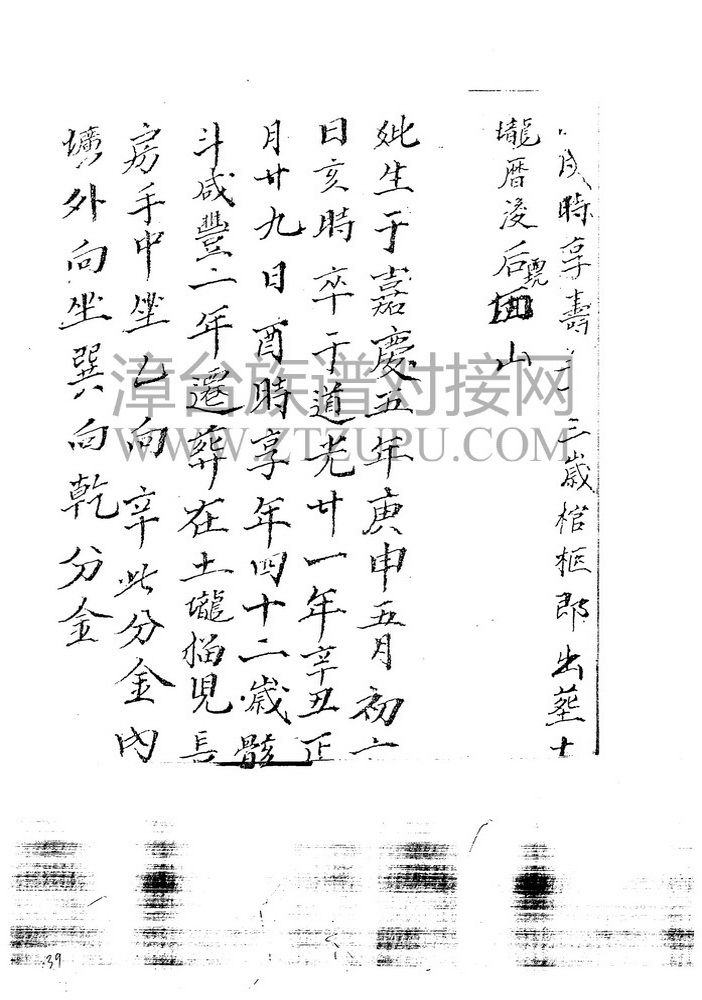 戌時享壽三歲棺柩即出塟土
壠厝後后山
妣生于嘉慶五年庚申五月初六
日亥時卒于道光廿一年辛丑正
月廿九日酉時享年四十二歲骸
斗咸豐二年遷葬在土壠猫児長
房手中坐乙向辛此分金内
壙外向坐巽向乾分金
漳台族谱对接网
WWW.ZTZUPU.COM
39